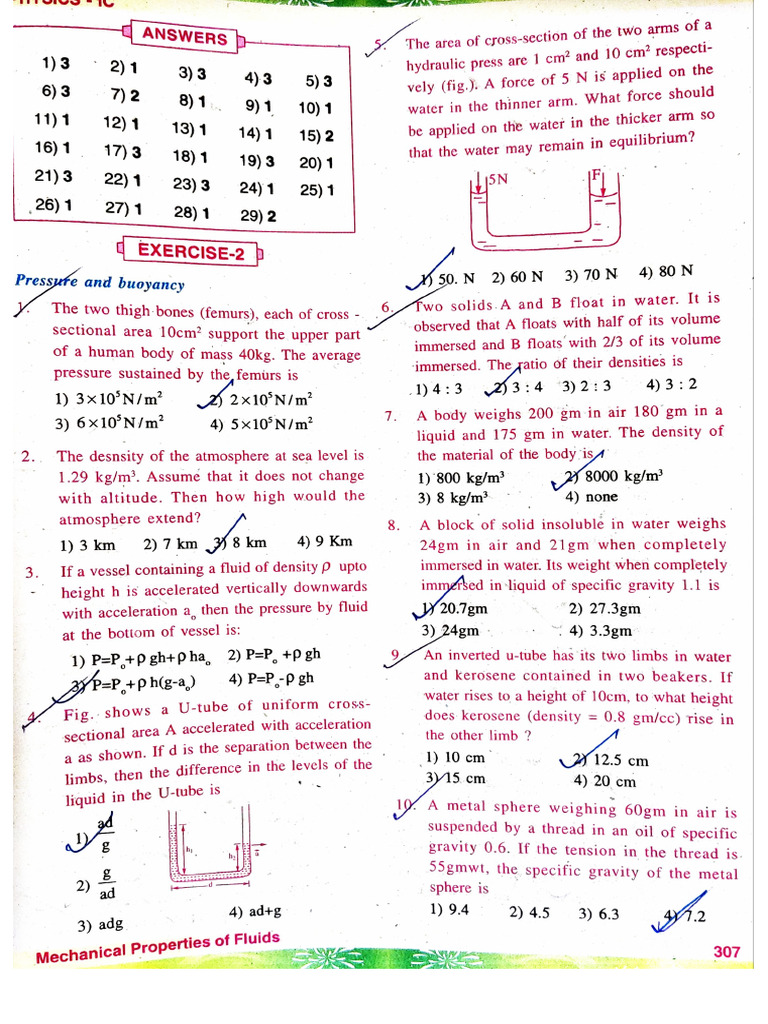 PHYSICS - 1C
ANSWERS
1) 3 2) 1 3) 3 4) 3 5) 3
6) 3 7) 2 8) 1 9) 1 10) 1
11) 1 12) 1 13) 1 14) 1 15) 2
16) 1 17) 3 18) 1 19) 3 20) 1
21) 3 22) 1 23) 3 24) 1 25) 1
26) 1 27) 1 28) 1 29) 2
EXERCISE-2
Pressure and buoyancy
1. The two thigh bones (femurs), each of cross -
sectional area 10cm² support the upper part
of a human body of mass 40kg. The average
pressure sustained by the femurs is
1) 3×10⁵N/m² 2) 2×10⁵N/m²
3) 6×10⁵N/m² 4) 5×10⁵N/m²
2. The desnsity of the atmosphere at sea level is
1.29 kg/m³. Assume that it does not change
with altitude. Then how high would the
atmosphere extend?
1) 3 km 2) 7 km 3) 8 km 4) 9 Km
3. If a vessel containing a fluid of density ρ upto
height h is accelerated vertically downwards
with acceleration aₒ then the pressure by fluid
at the bottom of vessel is:
1) P=Pₒ+ρ gh+ρ haₒ 2) P=Pₒ +ρ gh
3) P=Pₒ+ρ h(g-aₒ) 4) P=Pₒ-ρ gh
4. Fig. shows a U-tube of uniform cross-
sectional area A accelerated with acceleration
a as shown. If d is the separation between the
limbs, then the difference in the levels of the
liquid in the U-tube is
1) ad/g
2) g/ad
h₁ h₂ a
d
3) adg 4) ad+g
Mechanical Properties of Fluids
5. The area of cross-section of the two arms of a
hydraulic press are 1 cm² and 10 cm² respecti-
vely (fig.). A force of 5 N is applied on the
water in the thinner arm. What force should
be applied on the water in the thicker arm so
that the water may remain in equilibrium?
5N F
1) 50. N 2) 60 N 3) 70 N 4) 80 N
6. Two solids A and B float in water. It is
observed that A floats with half of its volume
immersed and B floats with 2/3 of its volume
immersed. The ratio of their densities is
1) 4 : 3 2) 3 : 4 3) 2 : 3 4) 3 : 2
7. A body weighs 200 gm in air 180 gm in a
liquid and 175 gm in water. The density of
the material of the body is
1) 800 kg/m³ 2) 8000 kg/m³
3) 8 kg/m³ 4) none
8. A block of solid insoluble in water weighs
24gm in air and 21gm when completely
immersed in water. Its weight when completely
immersed in liquid of specific gravity 1.1 is
1) 20.7gm 2) 27.3gm
3) 24gm 4) 3.3gm
9. An inverted u-tube has its two limbs in water
and kerosene contained in two beakers. If
water rises to a height of 10cm, to what height
does kerosene (density = 0.8 gm/cc) rise in
the other limb ?
1) 10 cm 2) 12.5 cm
3) 15 cm 4) 20 cm
10. A metal sphere weighing 60gm in air is
suspended by a thread in an oil of specific
gravity 0.6. If the tension in the thread is
55gmwt, the specific gravity of the metal
sphere is
1) 9.4 2) 4.5 3) 6.3 4) 7.2
307